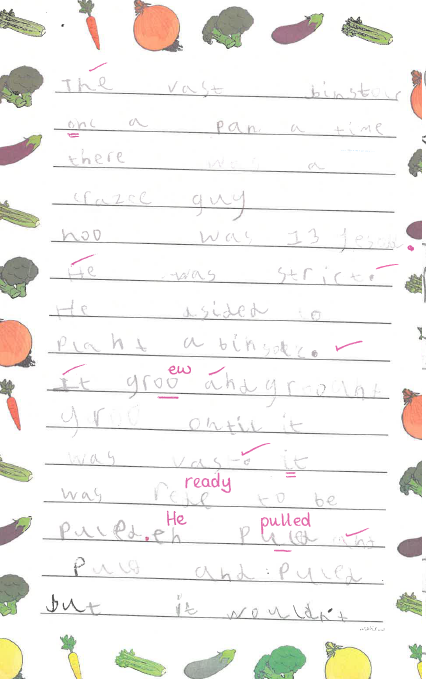 The vast binstor
onc a pan a time
there was a
crazee guy
hoo was 13
He was strict.
He dsided to
plant a binstor.
ew
It groo and groo and
groo ontil it
was vast it
ready
was rede to be
He pulled
pulled. eh puled and
puld and puled
but it wouldn't